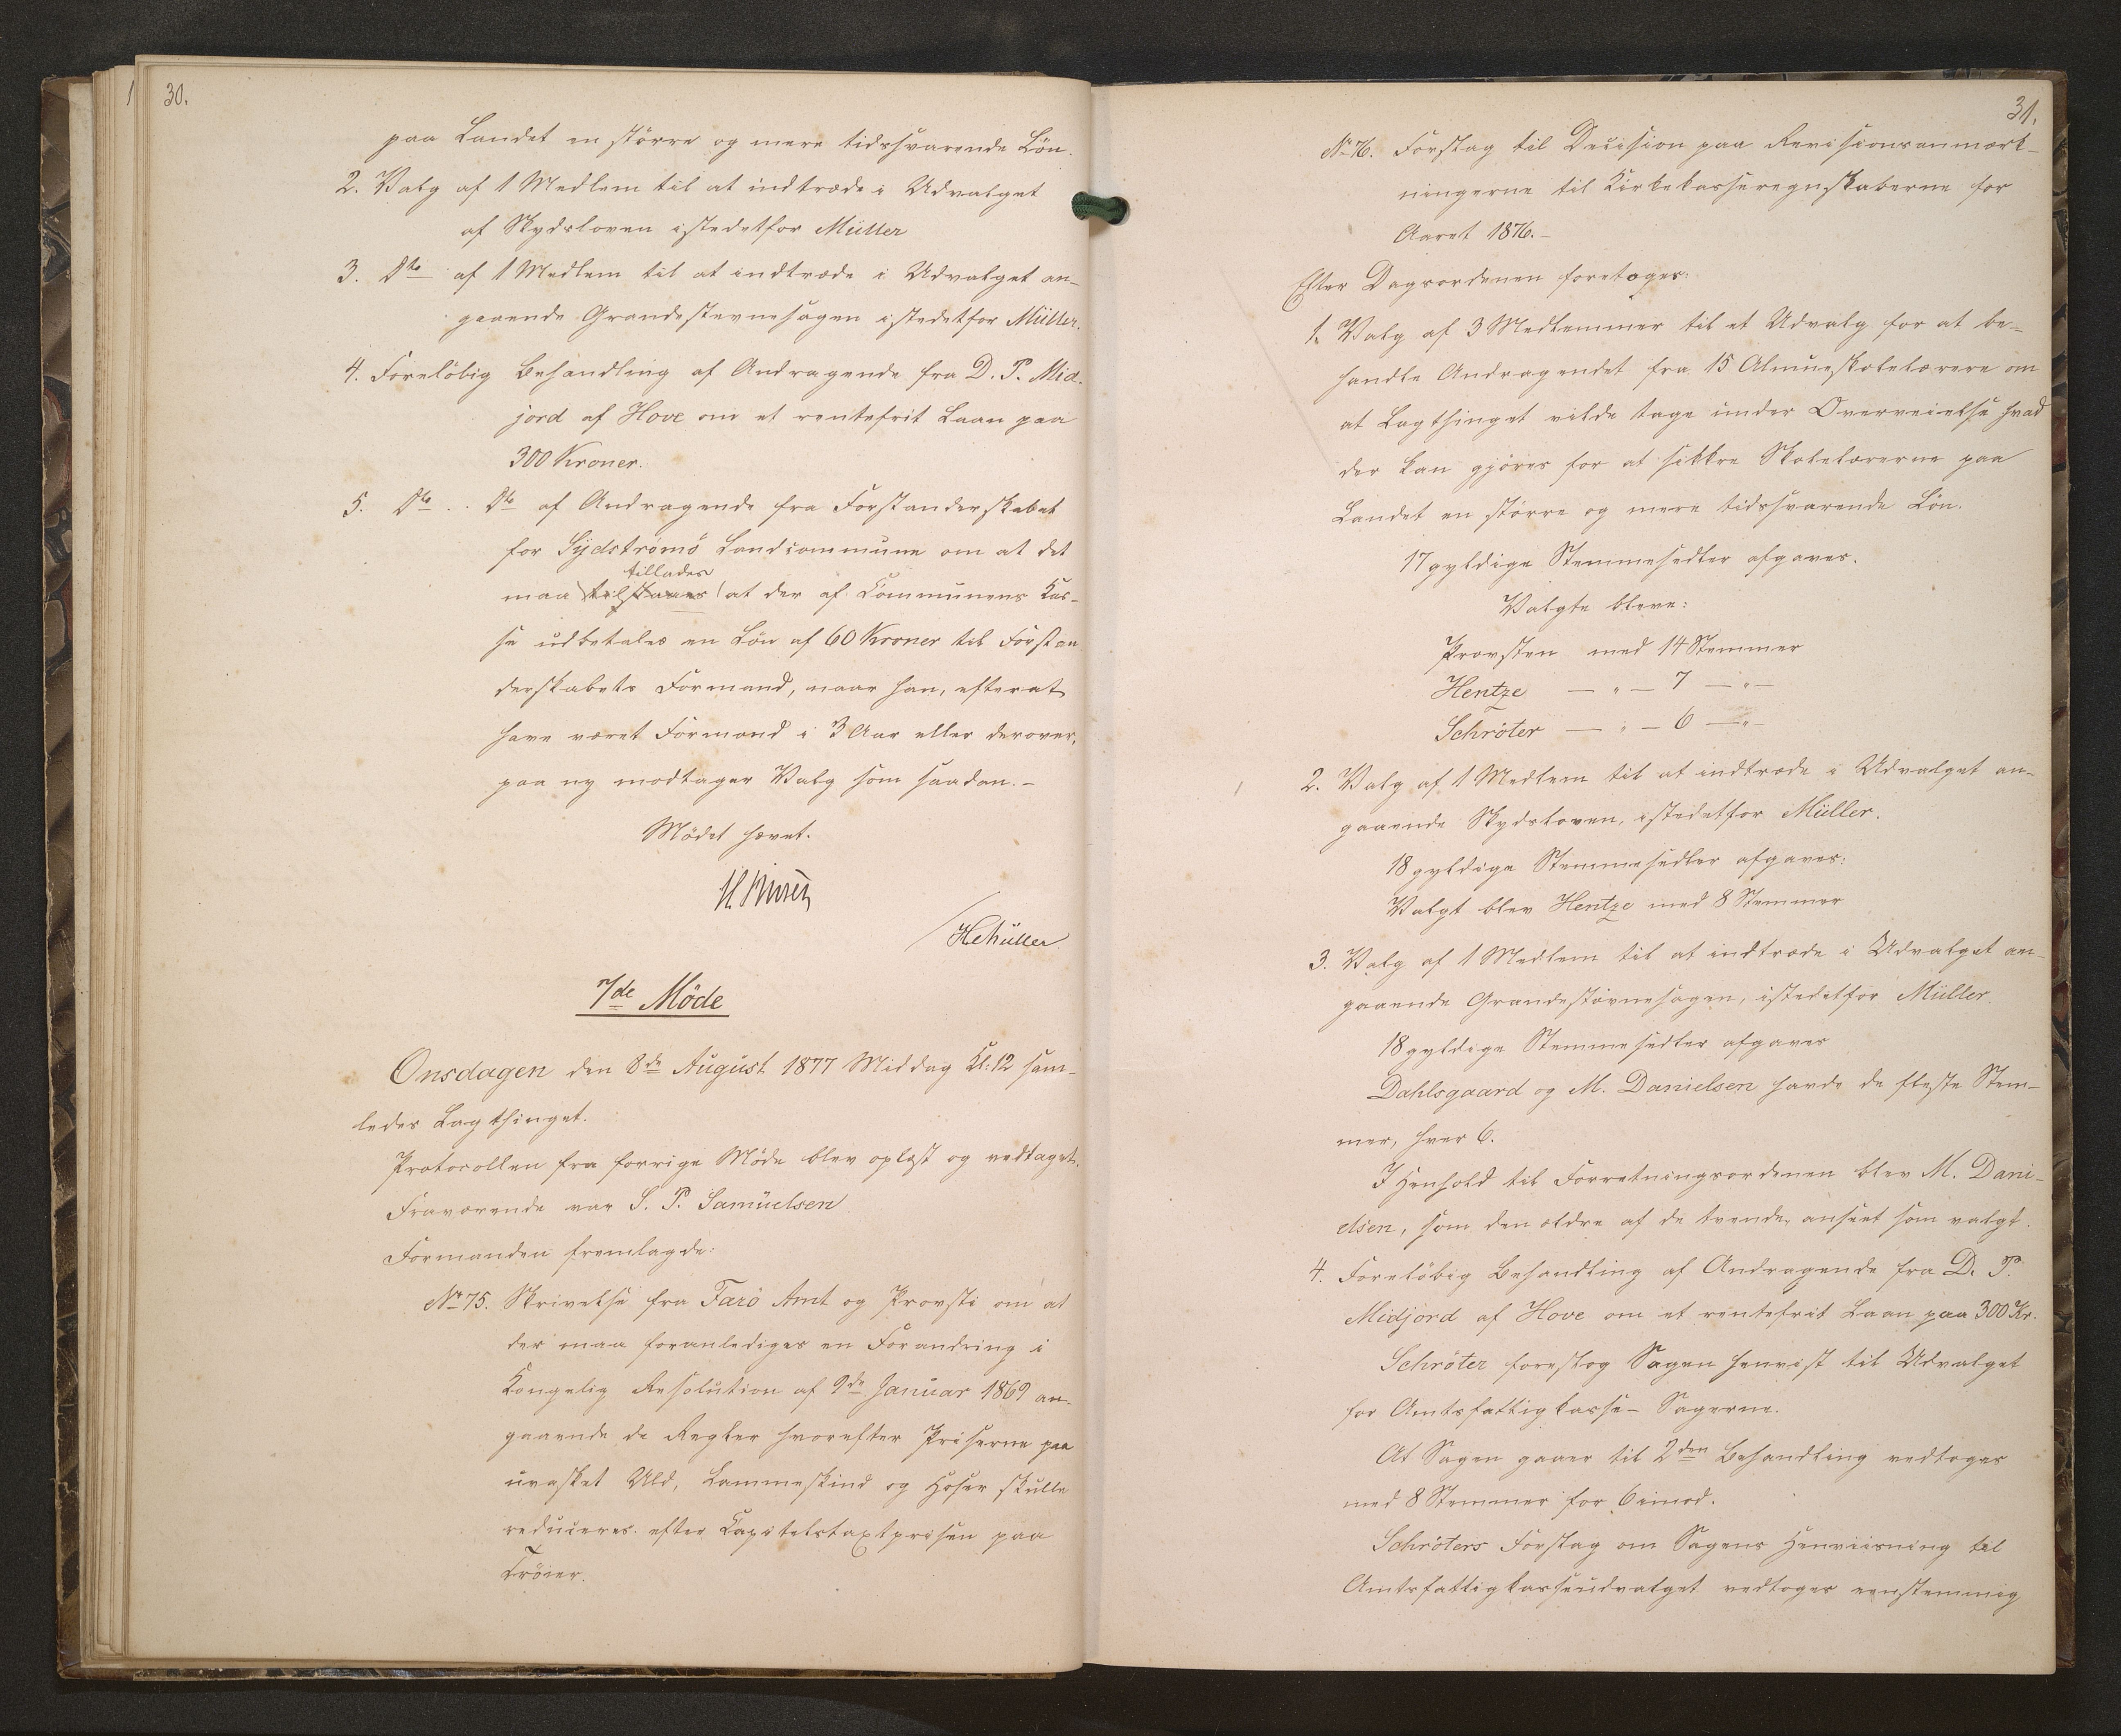 30.
paa Landet en större og mere tidssvarende Lön.
2. Valg af 1 Medlem til at indtræde i Udvalget
af Skydsloven istedetfor Müller
3. Dto af 1 Medlem til at indtræde i Udvalget an-
gaaende Grandestevnesagen istedetfor Müller.
4. Foreløbig Behandling af Andragende fra D. P. Mid-
jord af Hove om et rentefrit Laan paa
300 Kroner.
5. Dto .. Dto af Andragende fra Forstanderskabet
for Sydströmö Landcommune om at det
tillades
maa tilstaaes at der af Communens Kas-
se udbetales en Lön af 60 Kroner til Forstan
derskabets Formand, naar han, efterat
have været Formand i 3 Aar eller derover,
paa ny modtager Valg som saadan. -
Mödet hævet.
HMüller
7de Möde
Onsdagen den 8de August 1877 Middag Kl: 12 sam-
ledes Lagthinget.
Protocollen fra forrige Möde blev oplæst og vedtaget.
Fraværende var S. P. Samüelsen.
Formanden fremlagde:
No 75. Skrivelse fra Færö Amt og Provsti om at
der maa foranlediges en Forandring i
Kongelig Resolution af 9de Januar 1869 an-
gaaende de Regler hvorefter Priserne paa
uvasket Uld, Lammeskind og Hoser skulle
reduceres efter Capitelstaxtprisen paa
Tröier.
31.
No 76. Forslag til Decision paa Revisionsanmærk-
ningerne til Kirkekasseregnskaberne for
Aaret 1876. -
Efter Dagsordenen foretoges:
1. Valg af 3 Medlemmer til et Udvalg for at be-
handle Andragendet fra 15 Almueskolelærere om
at Lagthinget vilde tage under Overveielse hvad
der kan gjöres for at sikkre Skolelærerne paa
Landet en större og mere tidssvarende Lön.
17 gyldige Stemmesedler afgaves.
Valgte bleve:
Provsten med 14 Stemmer
Hentze — " — 7 — " —
Schröter — " — 6 — " —
2. Valg af 1 Medlem til at indtræde i Udvalget an-
gaaende Skydsloven, istedetfor Müller.
18 gyldige Stemmesedler afgaves:
Valgt blev Hentze med 8 Stemmer
3. Valg af 1 Medlem til at indtræde i Udvalget an-
gaaende Grandestævnesagen, istedetfor Müller.
18 gyldige Stemmesedler afgaves
Dahlsgaard og M. Danielsen havde de fleste Stem-
mer, hver 6.
I Henhold til Forretningsordenen blev M. Dani-
elsen, som den ældre af de tvende, anseet som valgt.
4. Foreløbig Behandling af Andragende fra D. P.
Midjord af Hove om et rentefrit Laan paa 300 Kr.
Schröter foreslog Sagen henvist til Udvalget
for Amtsfattigkasse- Sagerne.
At Sagen gaaer til 2den Behandling vedtoges
med 8 Stemmer for 6 imod.
Schröters Forslag om Sagens Henviisning til
Amtsfattigkasseudvalget vedtoges eenstemmig